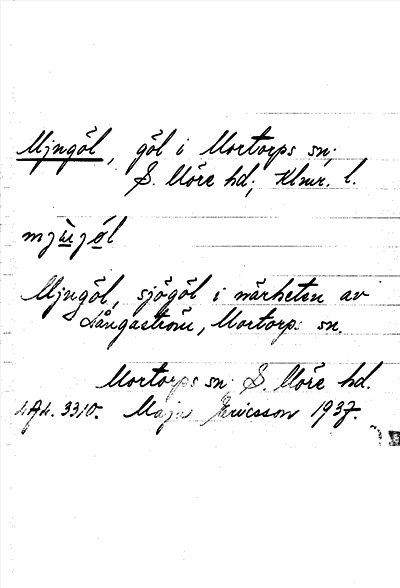 Mjugöl, göl i Mortorps sn;
S. Möre hd; Klmr. l.
mjùjöl
Mjugöl, sjögöl i närheten av
Långaström, Mortorp sn.
Mortorps sn S. Möre hd.
Maja Ericsson 1937.